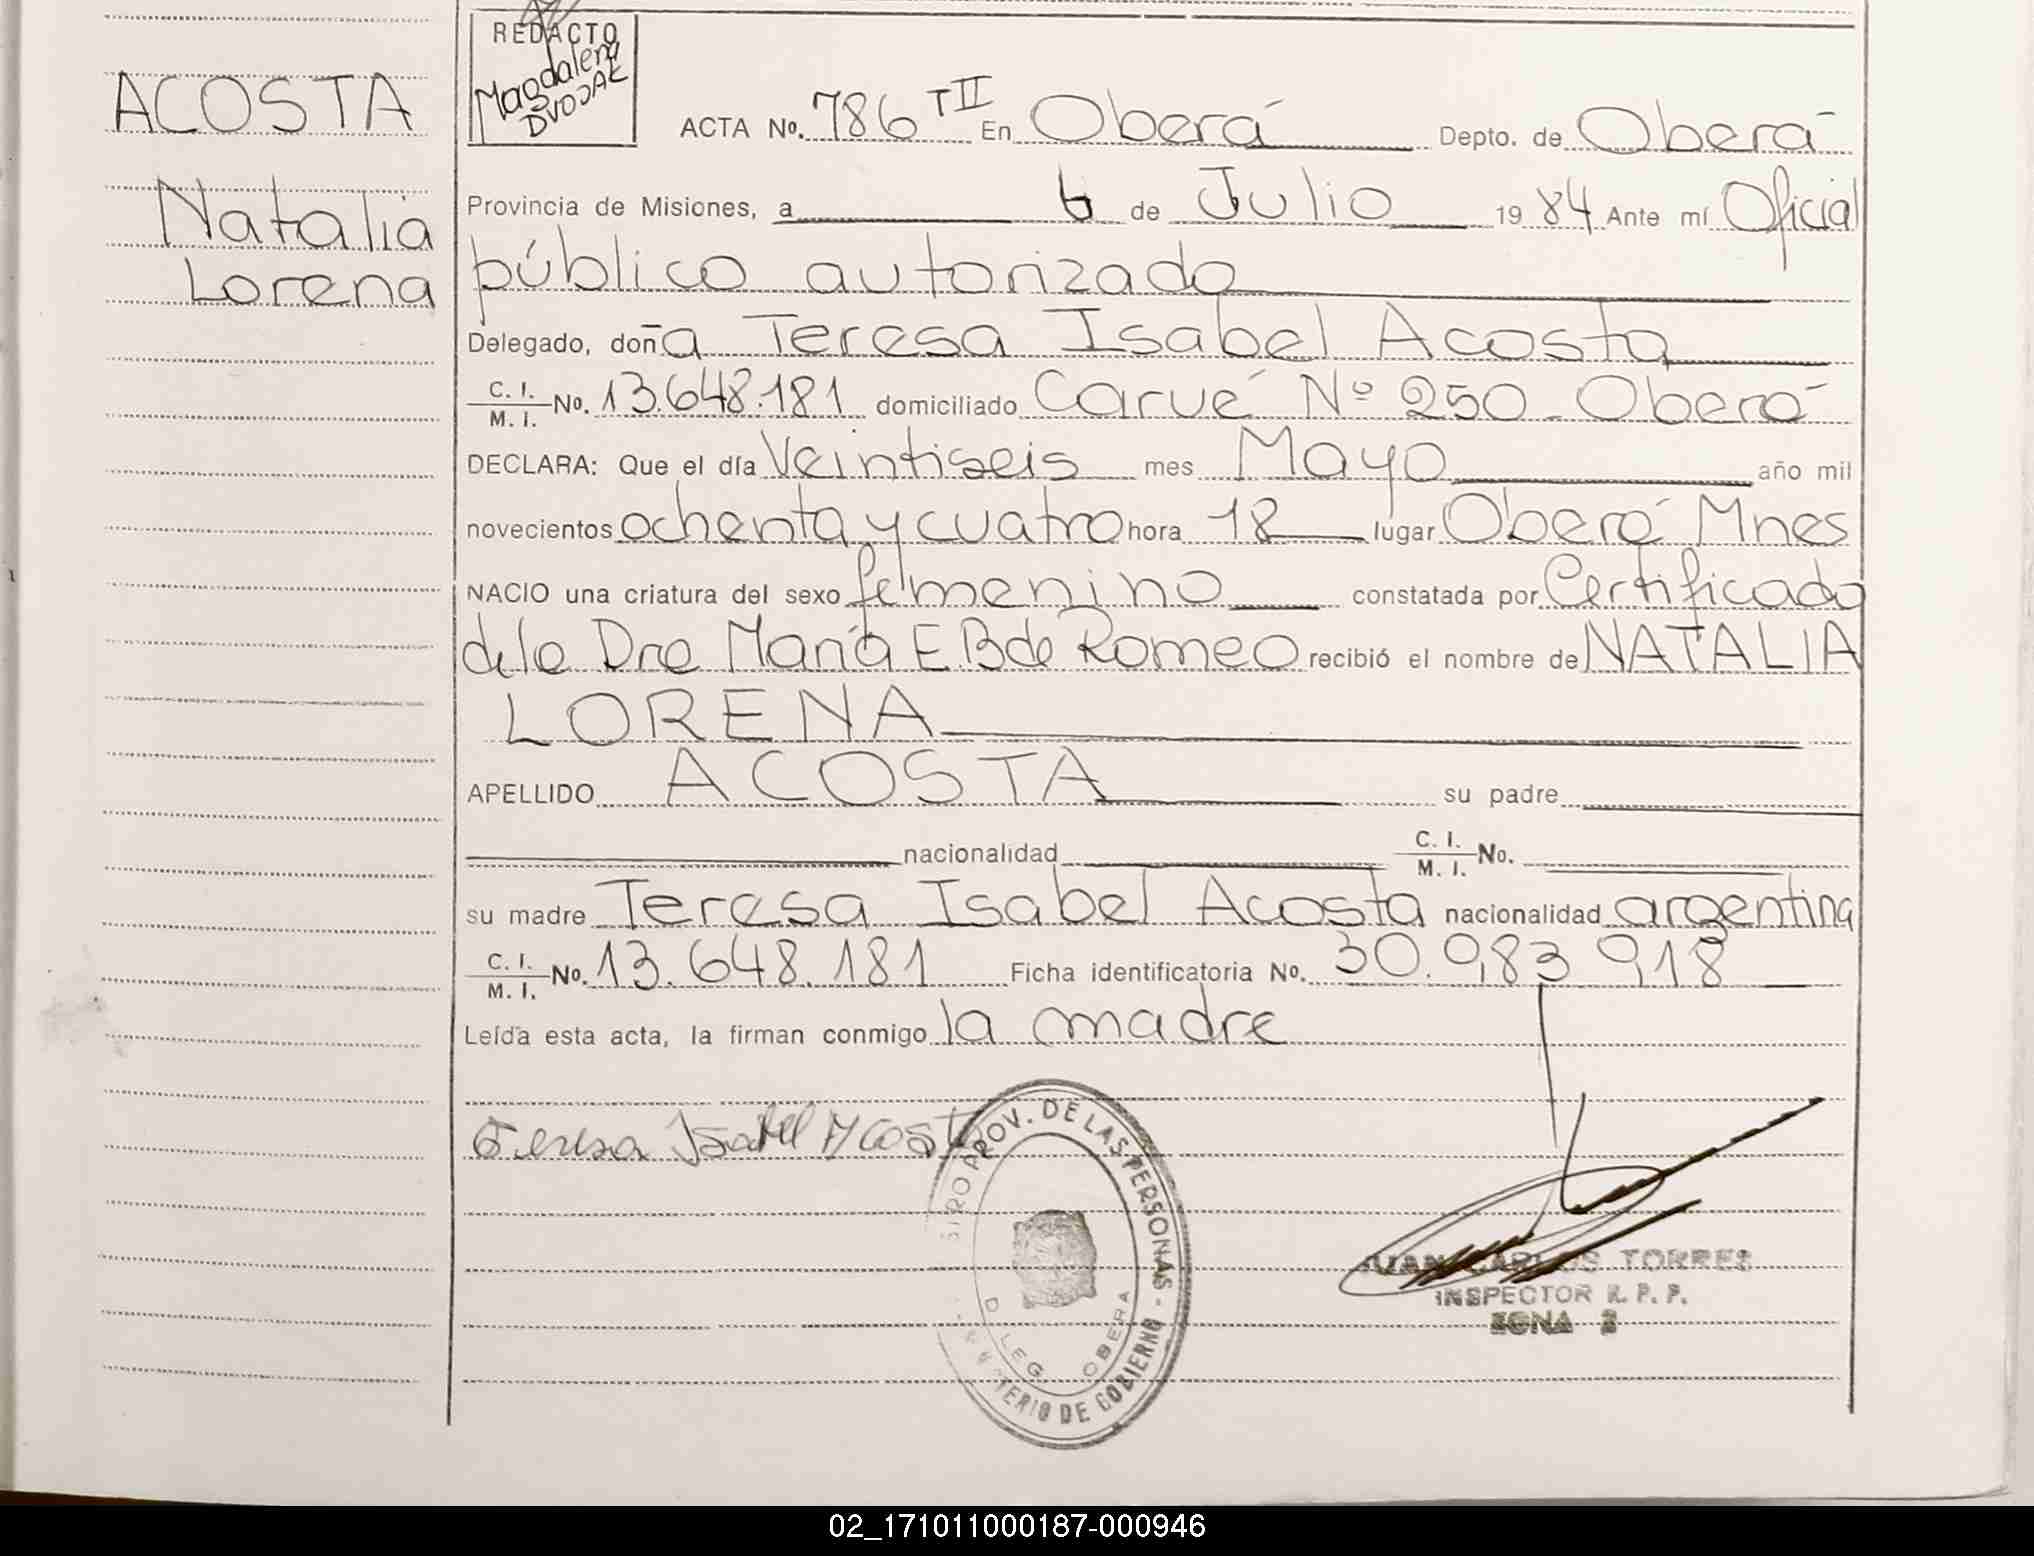 ACOSTA
Natalia
Lorena
REDACTO
Magdalena
DVOJAK
ACTA No. 786 T II En Oberá Depto. de Oberá
Provincia de Misiones, a 6 de Julio 1984 Ante mí Oficial
público autorizado
Delegado, doña Teresa Isabel Acosta
C. I. / M. I. No. 13.648.181 domiciliado Carué Nº 250 - Oberá
DECLARA: Que el día Veintiseis mes Mayo año mil
novecientos ochenta y cuatro hora 18 lugar Oberá Mnes
NACIO una criatura del sexo femenino constatada por Certificado
de la Dra María E B de Romeo recibió el nombre de NATALIA
LORENA
APELLIDO ACOSTA su padre
nacionalidad C. I. / M. I. No.
su madre Teresa Isabel Acosta nacionalidad argentina
C. I. / M. I. No. 13.648.181 Ficha identificatoria No. 30.983 918
Leída esta acta, la firman conmigo la madre
Teresa Isabel Acosta
PROV. DE LAS PERSONAS - DE GOBIERNO
OBERA
JUAN CARLOS TORRES
INSPECTOR R. P. P.
ZONA 2
02_171011000187-000946